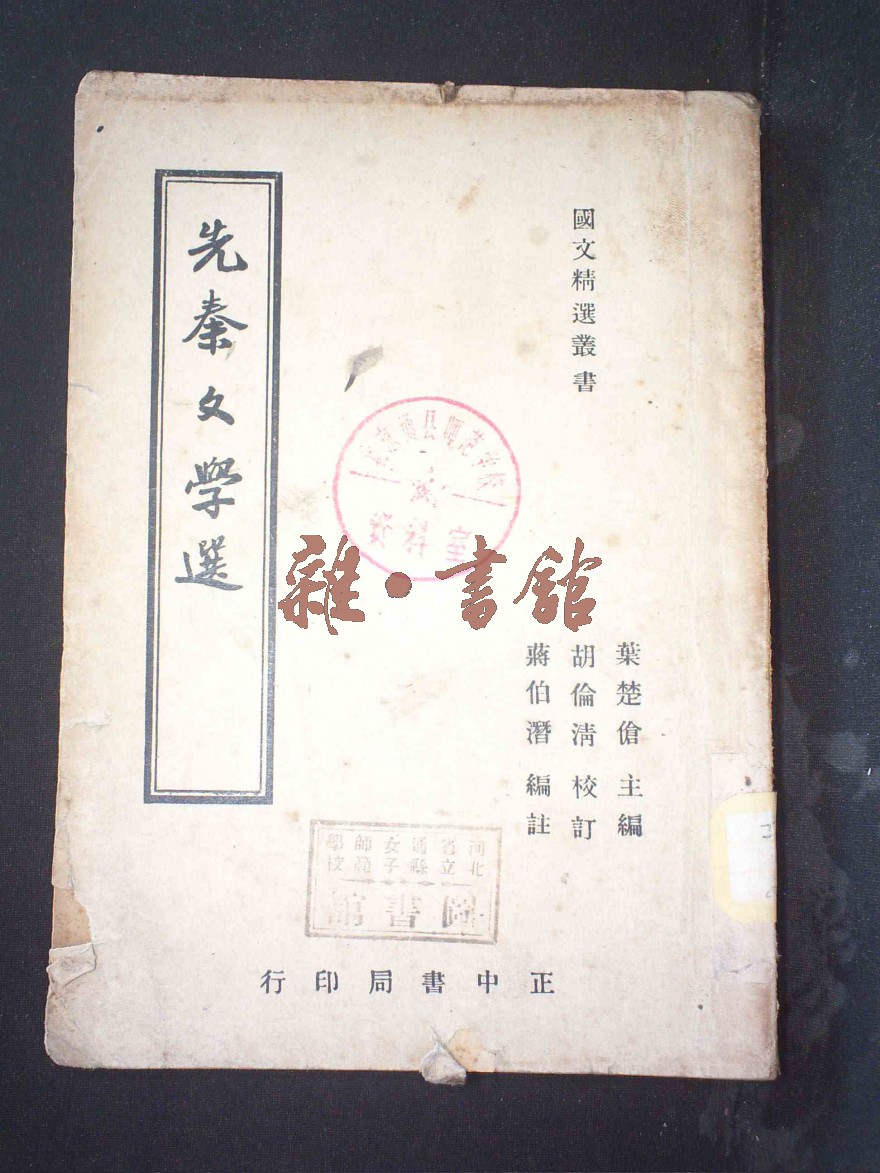 國文精選叢書
葉楚傖 主編
胡倫清 校訂
蔣伯潛 編註
先秦文學選
北京通县师范学校
資料室
雜·書館
河北省立通縣女子師範學校
圖書館
正中書局印行